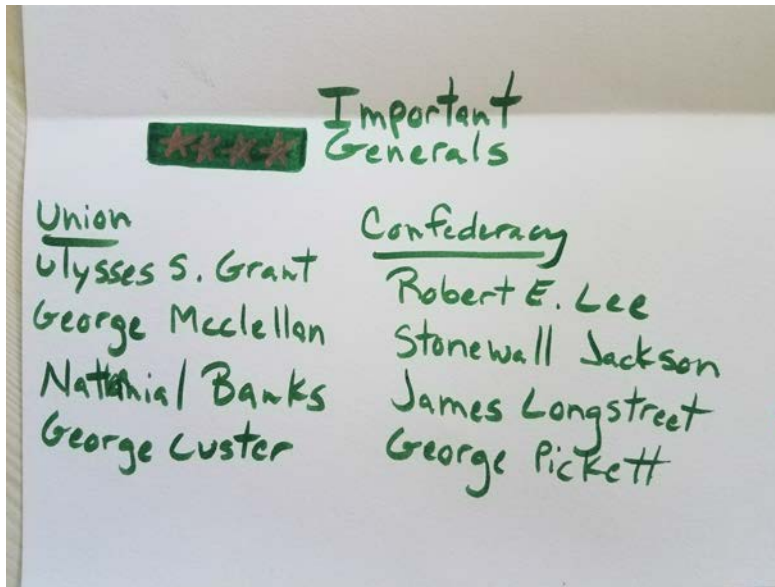 Important
Generals
Union
Ulysses S. Grant
George Mcclellan
Nathanial Banks
George Custer
Confederacy
Robert E. Lee
Stonewall Jackson
James Longstreet
George Pickett